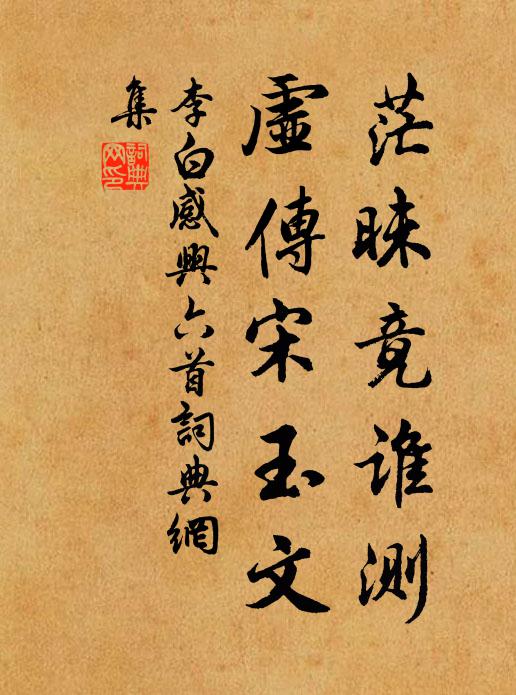 茫昧竟谁测
虛傳宋玉文
李白感興六首詞典網
集
詞典
网印